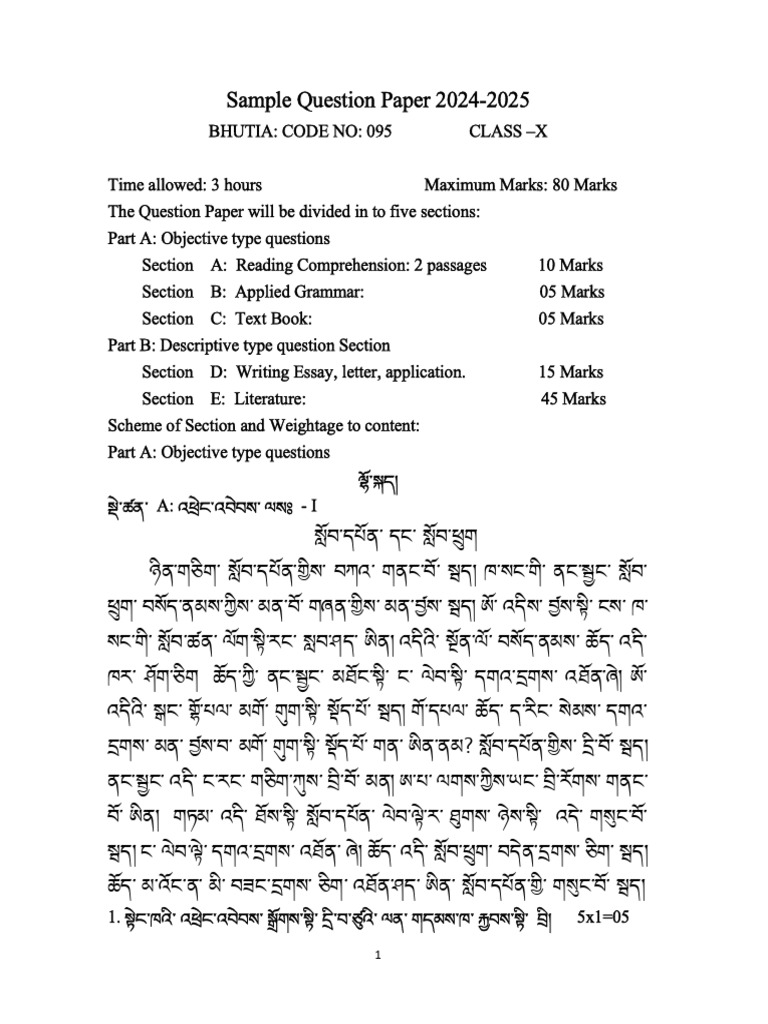 Sample Question Paper 2024-2025
BHUTIA: CODE NO: 095 CLASS –X
Time allowed: 3 hours Maximum Marks: 80 Marks
The Question Paper will be divided in to five sections:
Part A: Objective type questions
Section A: Reading Comprehension: 2 passages 10 Marks
Section B: Applied Grammar: 05 Marks
Section C: Text Book: 05 Marks
Part B: Descriptive type question Section
Section D: Writing Essay, letter, application. 15 Marks
Section E: Literature: 45 Marks
Scheme of Section and Weightage to content:
Part A: Objective type questions
ལྷོ་སྐད།
སྡེ་ཚན་ A: འཕྲེང་འབེབས་ ལསཿ - I
སློབ་དཔོན་ དང་ སློབ་ཕྲུག
ཉིན་གཅིག་ སློབ་དཔོན་གྱིས་ བཀའ་ གནང་བོ་ སྦད། ཁ་སང་གི་ ནང་སྦྱང་ སློབ་
ཕྲུག་ བསོད་ནམས་ཀྱིས་ མན་བོ་ གཞན་གྱིས་ མན་བྱས་ སྦད། ཨོ་ འདིས་ བྱས་སྟི་ ངས་ ཁ་
སང་གི་ སློབ་ཚན་ ལོག་སྟི་རང་ སླབ་ཤད་ ཨིན། འདིའི་ སྔོན་ལོ་ བསོད་ནམས་ ཆོད་ འདི་
ཁར་ ཤོག་ཅིག ཆོད་ཀྱི་ ནང་སྦྱང་ མཐོང་སྟི་ ང་ ལེབ་སྟི་ དགའ་དྲགས་ འཐོན་ཞེ། ཨོ་
འདིའི་ སྒང་ སྒོ་པལ་ མགོ་ གུག་སྟི་ སྡོད་པོ་ སྦད། གོ་དཔལ་ ཆོད་ ད་རིང་ སེམས་ དགའ་
དྲགས་ མན་ བྱས་བ་ མགོ་ གུག་སྟི་ སྡོད་པོ་ གན་ ཨིན་ནམ? སློབ་དཔོན་གྱིས་ དྲི་བོ་ སྦད།
ནང་སྦྱང་ འདི་ ང་རང་ གཅིག་ཀུས་ བྲི་བོ་ མན། ཨ་པ་ ལགས་ཀྱིས་ཡང་ བྲི་རོགས་ གནང་
བོ་ ཨིན། གཏམ་ འདི་ ཐོས་སྟི་ སློབ་དཔོན་ ལེབ་ལྟེ་ར་ ཐུགས་ ཉེས་སྟི་ འདེ་ གསུང་བོ་
སྦད། ང་ ལེབ་ལྟེ་ དགའ་དྲགས་ འཐོན་ ཞེ། ཆོད་ འདི་ སློབ་ཕྲུག་ བདེན་དྲགས་ ཅིག་ སྦད།
ཆོད་ མ་འོང་ན་ མི་ བཟང་དྲགས་ ཅིག་ འཐོན་ཤད་ ཨིན་ སློབ་དཔོན་གྱི་ གསུང་བོ་ སྦད།
1. སྟེང་ཁའི་ འཕྲེང་འབེབས་ སྒྲོགས་སྟི་ དྲི་བ་ཙུའི་ ལན་ གདམས་ཁ་ རྐྱབས་སྟི་ བྲི། 5x1=05
1